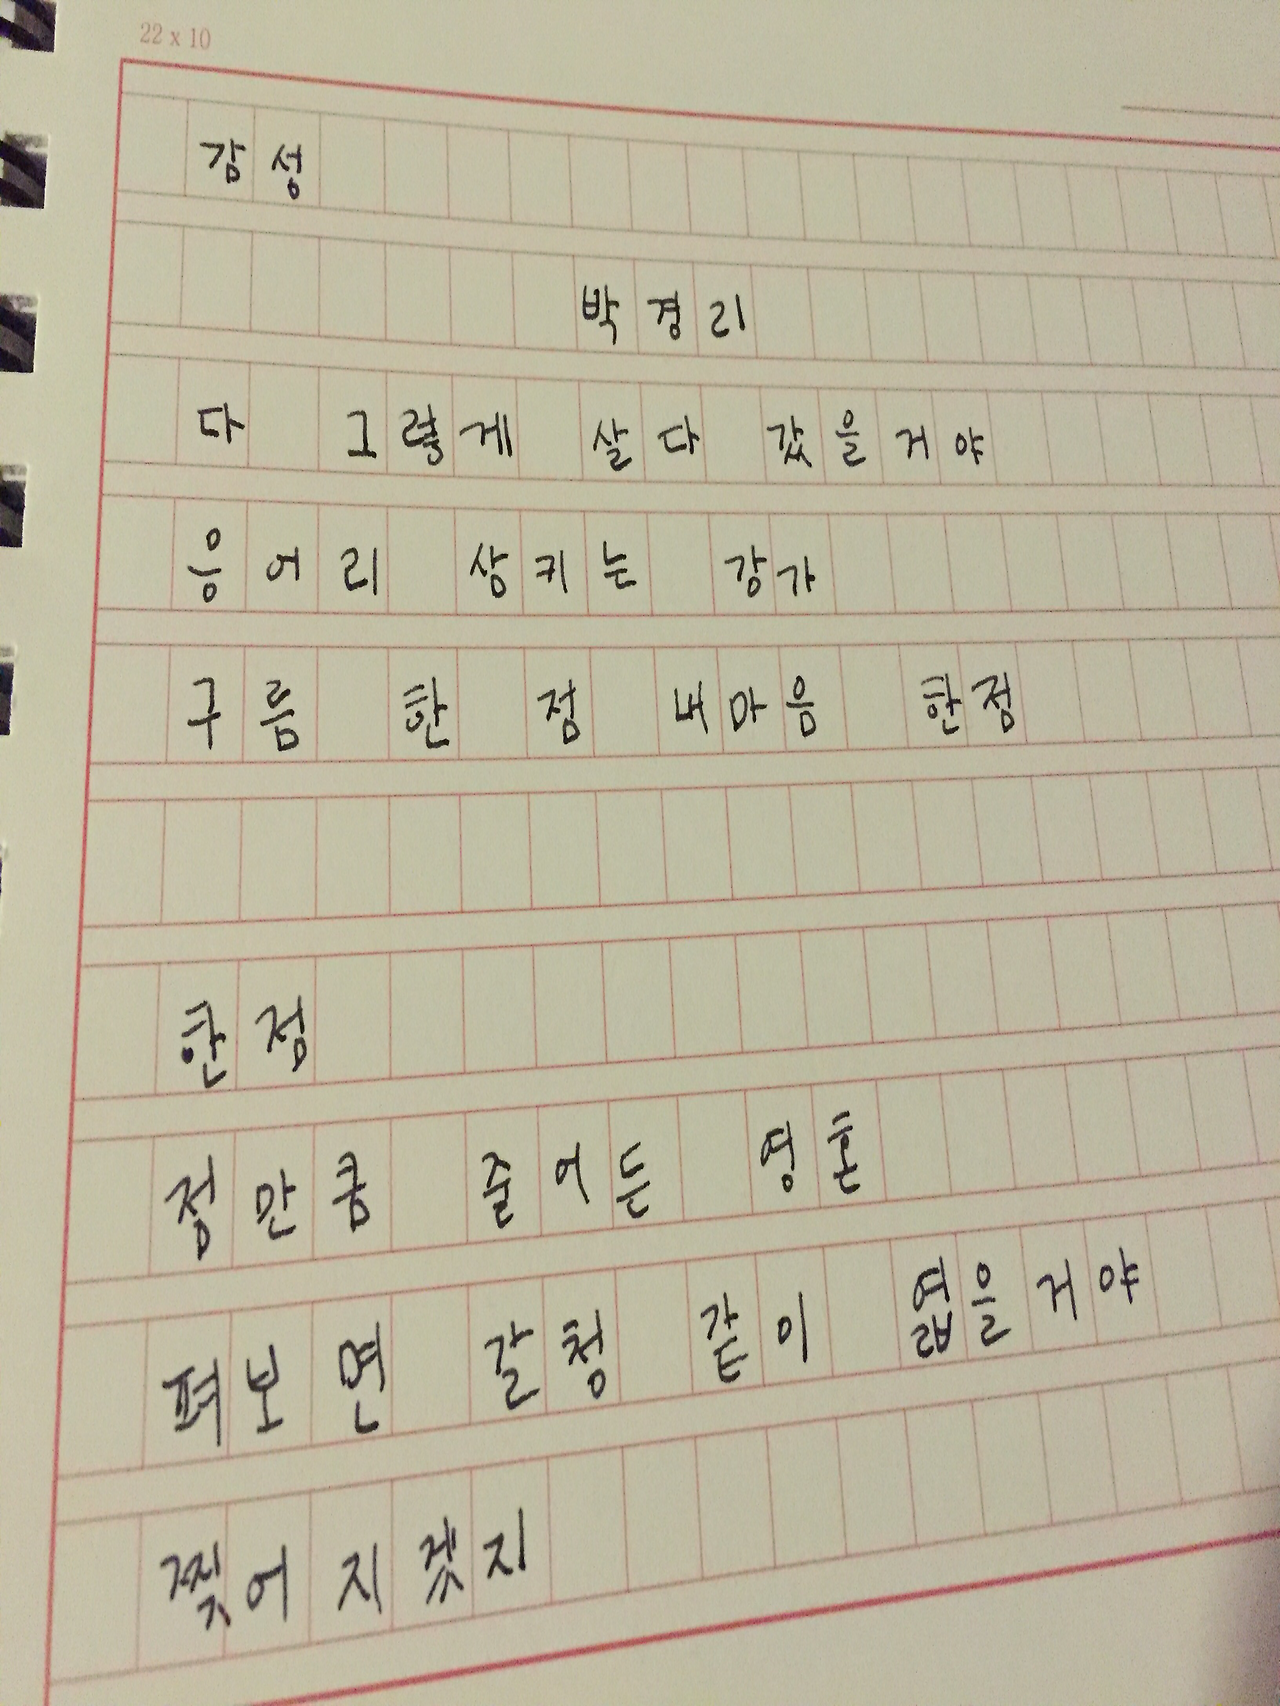 22 x 10
감성
박경리
다 그렇게 살다 갔을거야
응어리 삼키는 강가
구름 한 점 내마음 한점
한점
점만큼 줄어든 영혼
펴보면 갈청 같이 엷을거야
찢어지겠지